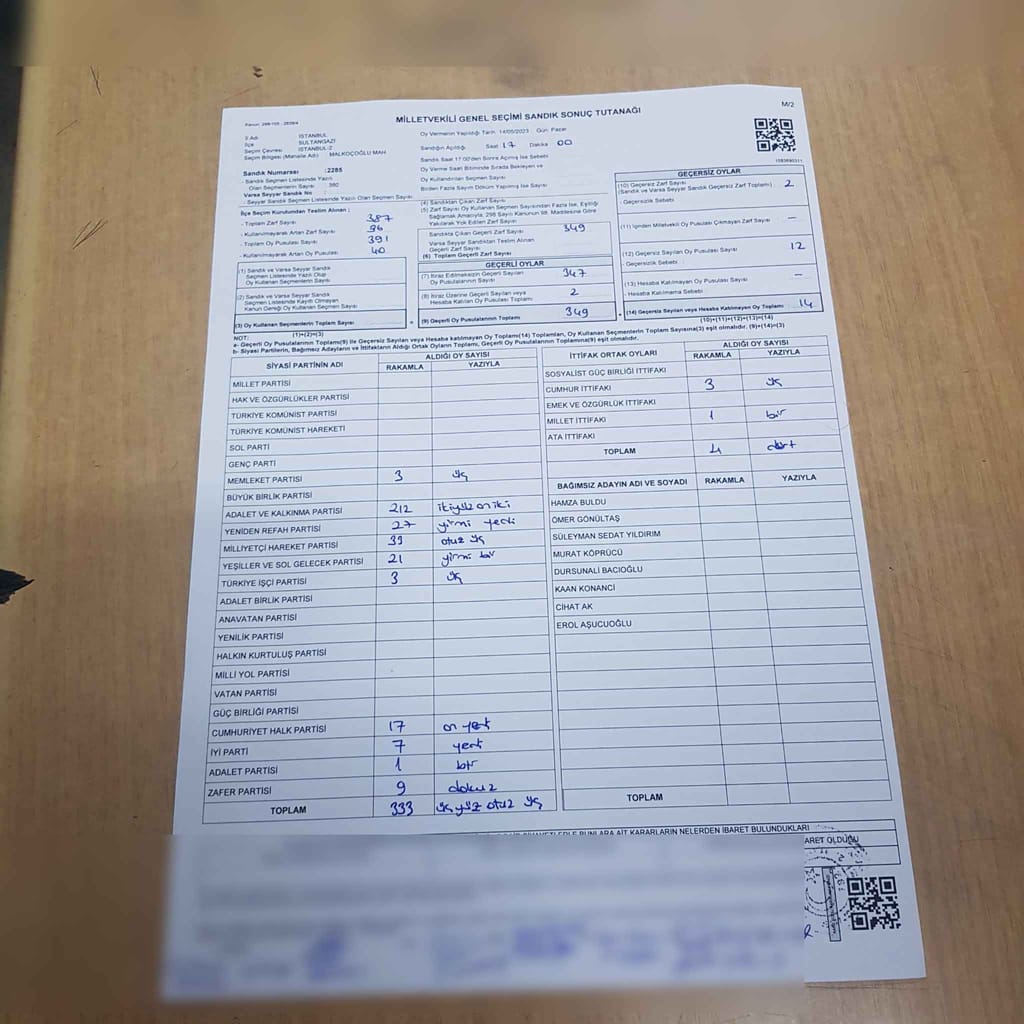 M/2
MİLLETVEKİLİ GENEL SEÇİMİ SANDIK SONUÇ TUTANAĞI
İl Adı : İSTANBUL
İlçe : SULTANGAZİ
Seçim Çevresi : İSTANBUL-2
Seçim Bölgesi (Mahalle Adı) : MALKOÇOĞLU MAH
Sandık Numarası : 2285
- Sandık Seçmen Listesinde Yazılı
Olan Seçmenlerin Sayısı : 380
Varsa Seyyar Sandık No :
- Seyyar Sandık Seçmen Listesinde Yazılı Olan Seçmen Sayısı
İlçe Seçim Kurulundan Teslim Alınan ;
- Toplam Zarf Sayısı 387
- Kullanılmayarak Artan Zarf Sayısı 36
- Toplam Oy Pusulası Sayısı 391
- Kullanılmayarak Artan Oy Pusulası 40
(1) Sandık ve Varsa Seyyar Sandık
Seçmen Listesinde Yazılı Olup
Oy Kullanan Seçmenlerin Sayısı
(2) Sandık ve Varsa Seyyar Sandık
Seçmen Listesinde Kayıtlı Olmayan
Kanun Gereği Oy Kullanan Seçmen Sayısı
(3) Oy Kullanan Seçmenlerin Toplam Sayısı
(1)+(2)=(3)
Oy Vermenin Yapıldığı Tarih 14/05/2023 Gün: Pazar
Sandığın Açıldığı Saat 17 Dakika 00
Sandık Saat 17:00'den Sonra Açılmış İse Sebebi
Oy Verme Saati Bitiminde Sırada Bekleyen ve
Oy Kullandırılan Seçmen Sayısı
Birden Fazla Sayım Döküm Yapılmış İse Sayısı
(4) Sandıktan Çıkan Zarf Sayısı
(5) Zarf Sayısı Oy Kullanan Seçmen Sayısından Fazla İse, Eşitliği
Sağlamak Amacıyla, 298 Sayılı Kanunun 98. Maddesine Göre
Yakılarak Yok Edilen Zarf Sayısı
Sandıkta Çıkan Geçerli Zarf Sayısı 349
Varsa Seyyar Sandıktan Teslim Alınan
Geçerli Zarf Sayısı
(6) Toplam Geçerli Zarf Sayısı
GEÇERLİ OYLAR
(7) İtiraz Edilmeksizin Geçerli Sayılan
Oy Pusulalarının Sayısı 347
(8) İtiraz Üzerine Geçerli Sayılan veya
Hesaba Katılan Oy Pusulası Toplamı 2
(9) Geçerli Oy Pusulası Toplamı 349
GEÇERSİZ OYLAR
(10) Geçersiz Zarf Sayısı
(Sandık ve Varsa Seyyar Sandık Geçersiz Zarf Toplamı) 2
- Geçersizlik Sebebi
(11) İçinden Milletvekili Oy Pusulası Çıkmayan Zarf Sayısı –
(12) Geçersiz Sayılan Oy Pusulası Sayısı 12
- Geçersizlik Sebebi :
(13) Hesaba Katılmayan Oy Pusulası Sayısı –
- Hesaba Katılmama Sebebi
(14) Geçersiz Sayılan veya Hesaba Katılmayan Oy Toplamı 14
(10)+(11)+(12)+(13)=(14)
NOT:
a- Geçerli Oy Pusulalarının Toplamı(9) ile Geçersiz Sayılan veya Hesaba katılmayan Oy Toplamı(14) Toplamları, Oy Kullanan Seçmenlerin Toplam Sayısına(3) eşit olmalıdır. (9)+(14)=(3)
b- Siyasi Partilerin, Bağımsız Adayların ve İttifakların Aldığı Oyların Toplamı, Geçerli Oy Pusulalarının Toplamına(9) eşit olmalıdır.
SİYASİ PARTİNİN ADI ALDIĞI OY SAYISI
RAKAMLA YAZIYLA
MİLLET PARTİSİ
HAK VE ÖZGÜRLÜKLER PARTİSİ
TÜRKİYE KOMÜNİST PARTİSİ
TÜRKİYE KOMÜNİST HAREKETİ
SOL PARTİ
GENÇ PARTİ
MEMLEKET PARTİSİ 3 üç
BÜYÜK BİRLİK PARTİSİ
ADALET VE KALKINMA PARTİSİ 212 ikiyüz on iki
YENİDEN REFAH PARTİSİ 27 yirmi yedi
MİLLİYETÇİ HAREKET PARTİSİ 33 otuz üç
YEŞİLLER VE SOL GELECEK PARTİSİ 21 yirmi bir
TÜRKİYE İŞÇİ PARTİSİ 3 üç
ADALET BİRLİK PARTİSİ
ANAVATAN PARTİSİ
YENİLİK PARTİSİ
HALKIN KURTULUŞ PARTİSİ
MİLLİ YOL PARTİSİ
VATAN PARTİSİ
GÜÇ BİRLİĞİ PARTİSİ
CUMHURİYET HALK PARTİSİ 17 on yedi
İYİ PARTİ 7 yedi
ADALET PARTİSİ 1 bir
ZAFER PARTİSİ 9 dokuz
TOPLAM 333 üç yüz otuz üç
İTTİFAK ORTAK OYLARI ALDIĞI OY SAYISI
RAKAMLA YAZIYLA
SOSYALİST GÜÇ BİRLİĞİ İTTİFAKI
CUMHUR İTTİFAKI 3 üç
EMEK VE ÖZGÜRLÜK İTTİFAKI
MİLLET İTTİFAKI 1 bir
ATA İTTİFAKI
TOPLAM 4 dört
BAĞIMSIZ ADAYIN ADI VE SOYADI RAKAMLA YAZIYLA
HAMZA BULDU
ÖMER GÖNÜLTAŞ
SÜLEYMAN SEDAT YILDIRIM
MURAT KÖPRÜCÜ
DURSUNALİ BACIOĞLU
KAAN KONANCİ
CİHAT AK
EROL AŞUCUOĞLU
TOPLAM
BUNLARA AİT KARARLARIN NELERDEN İBARET BULUNDUKLARI
ARET OLDUĞU